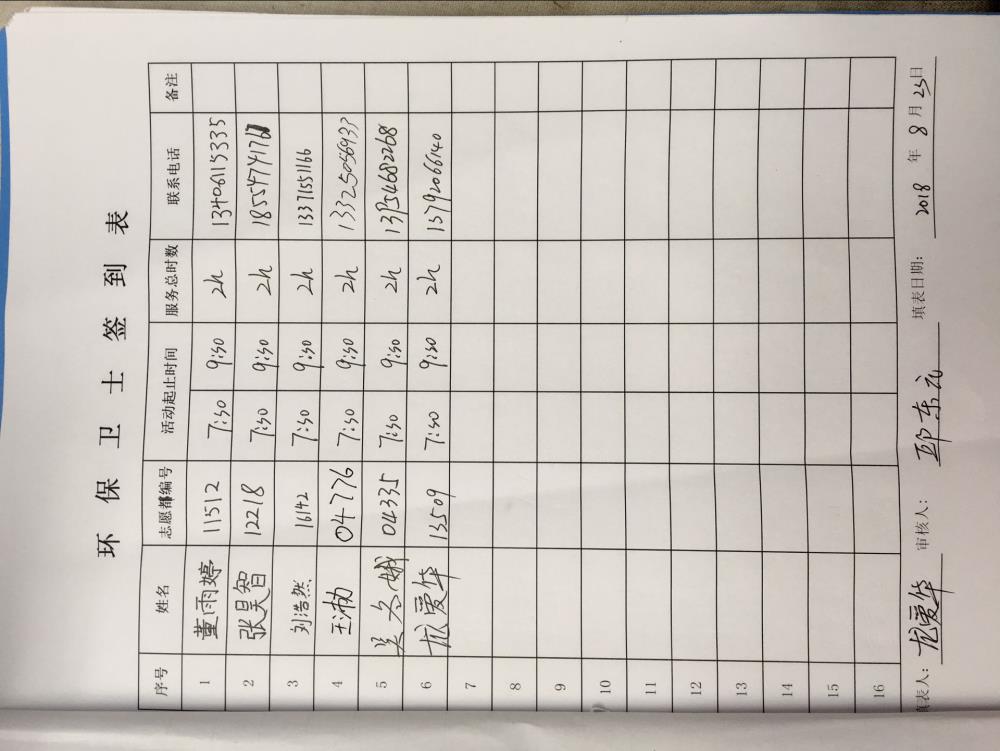 环保卫士签到表
序号 姓名 志愿者编号 活动起止时间 服务总时数 联系电话 备注
1 董雨婷 11512 7:30 9:30 2h 13406115335
2 张昊智 12218 7:30 9:30 2h 18554741761
3 刘浩然 16142 7:30 9:30 2h 13371551166
4 王沛 04776 7:30 9:30 2h 13325056933
5 吴冬娥 04335 7:30 9:30 2h 13954682268
6 龙爱华 13509 7:30 9:30 2h 15792066140
7
8
9
10
11
12
13
14
15
16
填表人: 龙爱华 审核人: 邱东元 填表日期: 2018 年 8 月 23 日